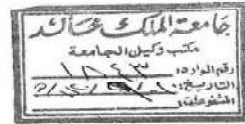 جامعة الملك خالد
مكتب وكيل الجامعة
رقم الوارد: ١٨٤٣
التاريخ:
المشفوعات: